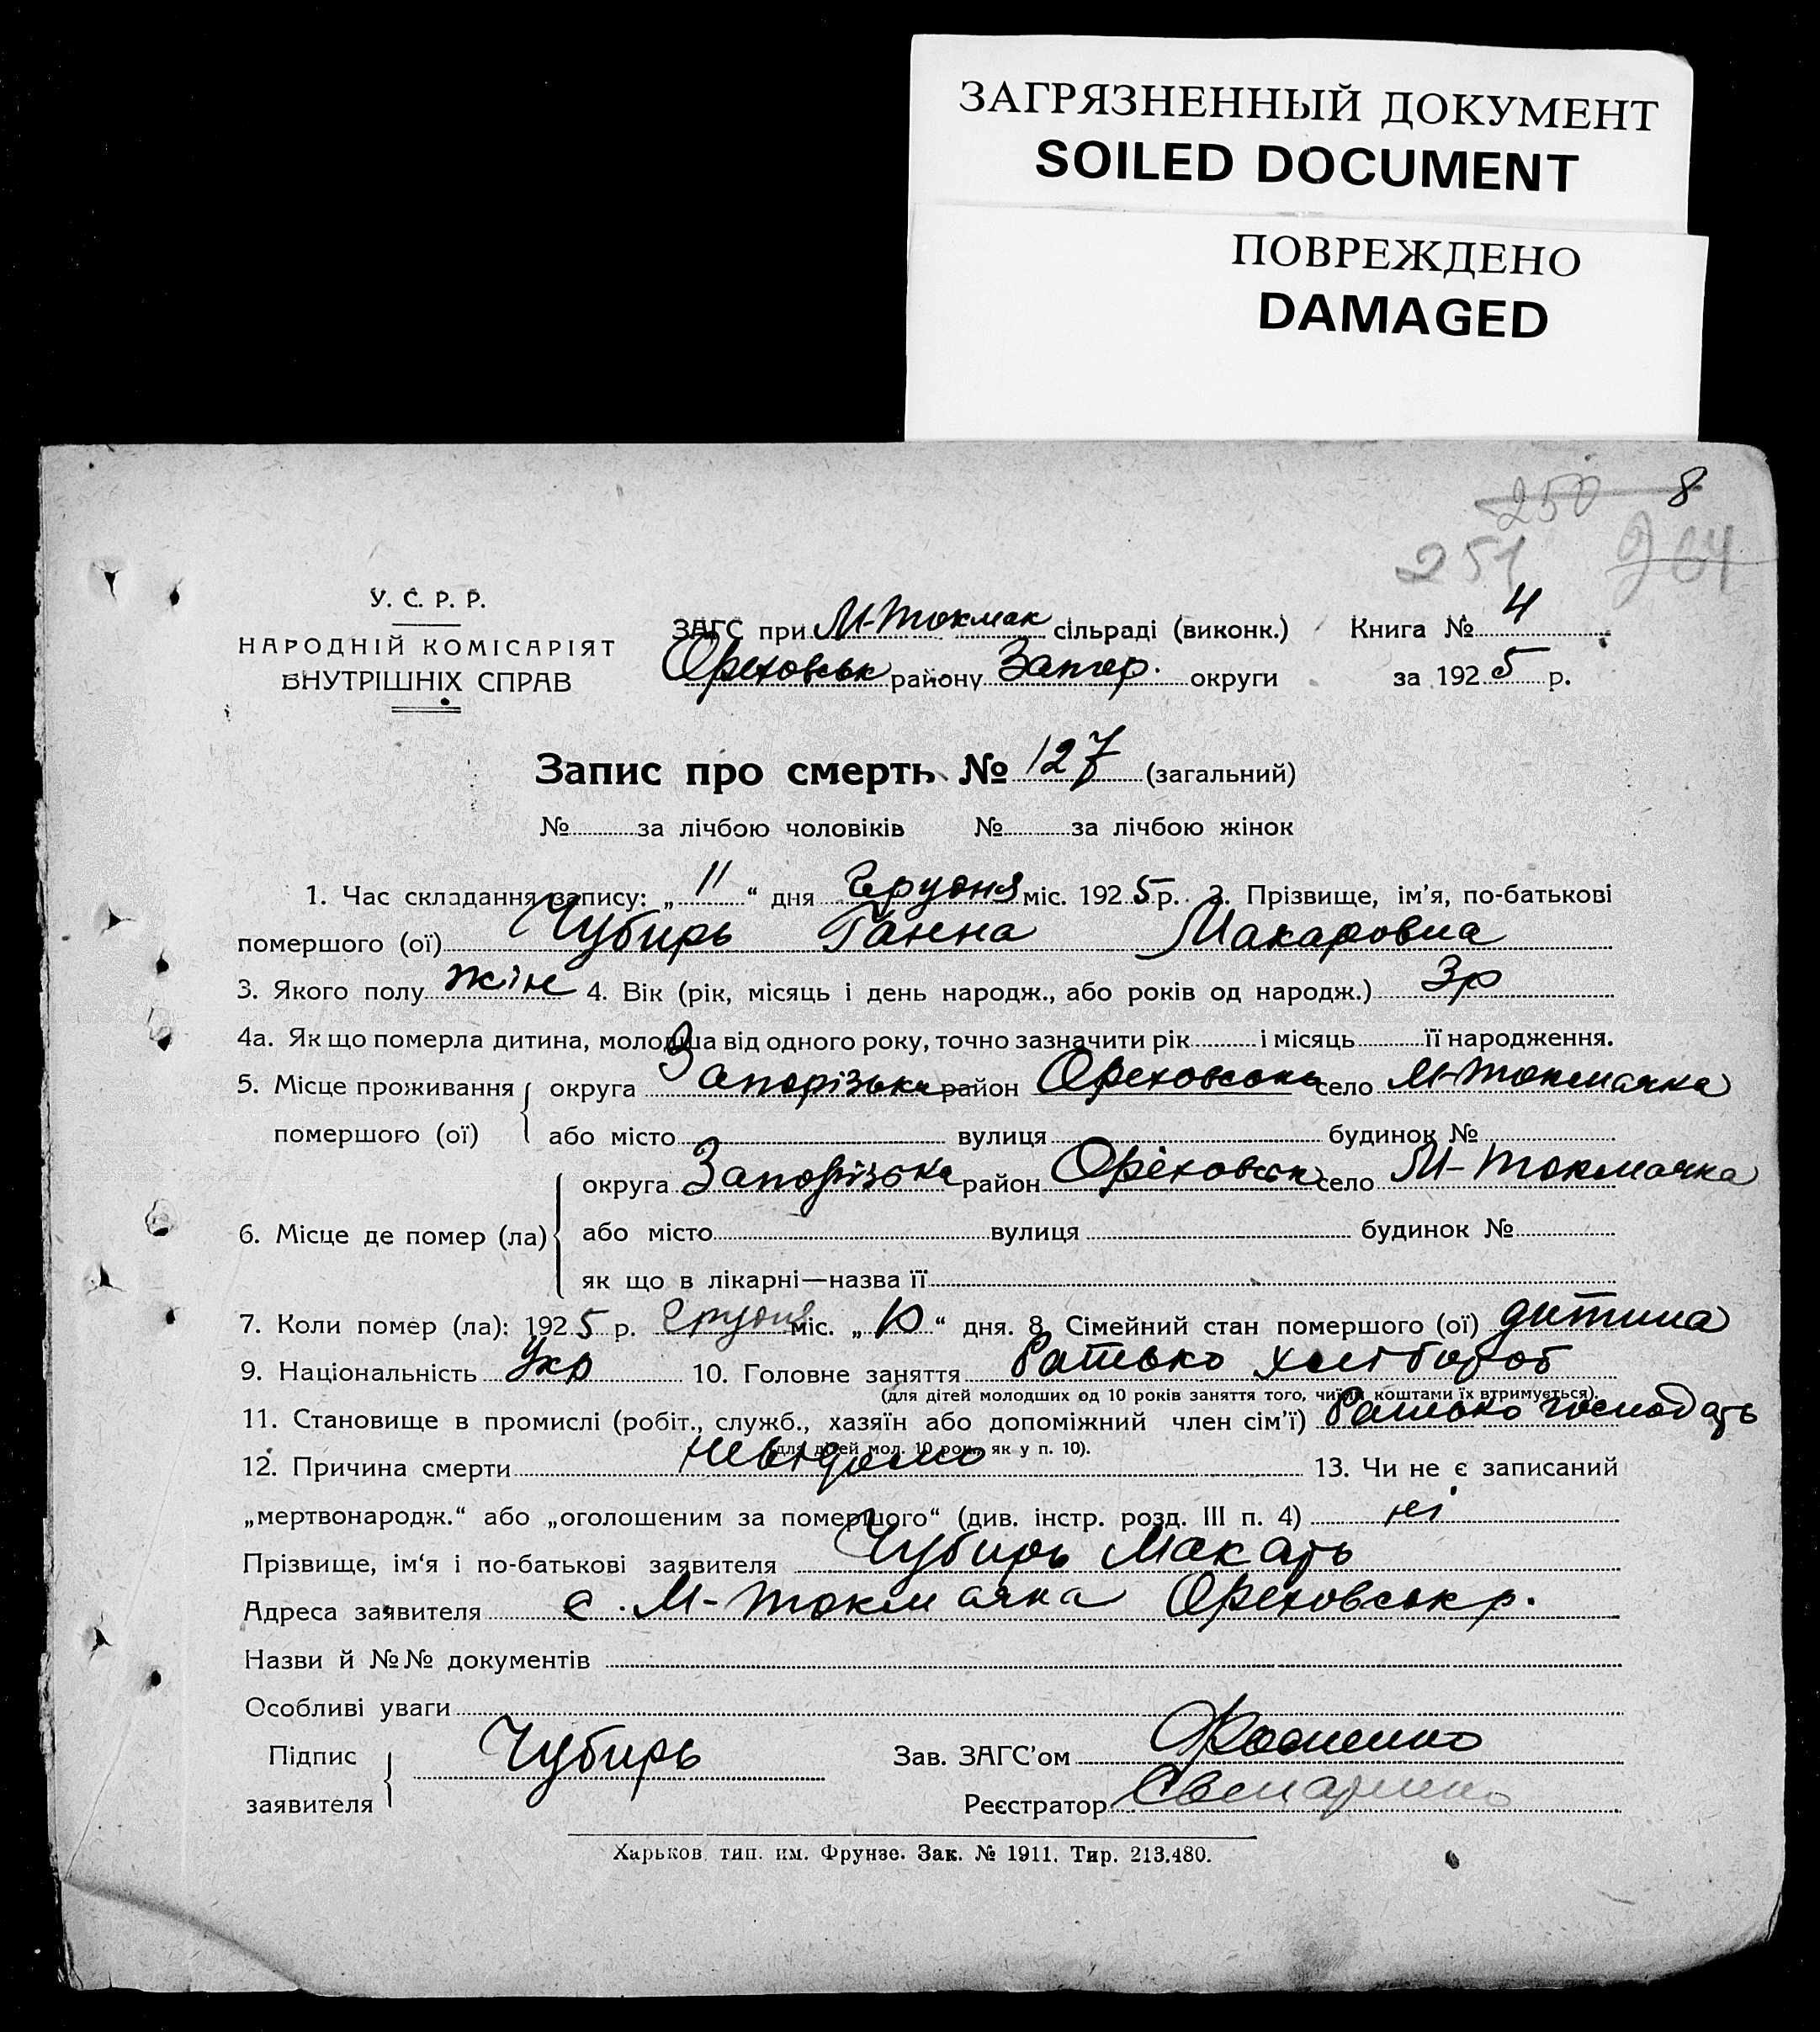 ЗАГРЯЗНЕННЫЙ ДОКУМЕНТ
SOILED DOCUMENT
ПОВРЕЖДЕНО
DAMAGED
250 8
251 264
У. С. Р. Р.
НАРОДНІЙ КОМІСАРІЯТ
ВНУТРІШНІХ СПРАВ
ЗАГС при М-Токмак сільраді (виконк.) Книга № 4
Ореховськ району Запор. округи за 1925 р.
Запис про смерть № 127 (загальний)
№ за лічбою чоловіків № за лічбою жінок
1. Час складання запису: „11“ дня Грудня міс. 1925 р. 2. Прізвище, ім'я, по-батькові
помершого (ої) Чубирь Ганна Макаровна
3. Якого полу жін 4. Вік (рік, місяць і день народж., або років од народж.) 3р
4а. Як що померла дитина, молодша від одного року, точно зазначити рік і місяць її народження.
5. Місце проживання округа Запорізька район Ореховськ село М-Токмачка
помершого (ої) або місто вулиця будинок №
округа Запорізька район Ореховськ село М-Токмачка
6. Місце де помер (ла) або місто вулиця будинок №
як що в лікарні—назва її
7. Коли помер (ла): 1925 р. Грудня міс. „10“ дня. 8. Сімейний стан помершого (ої) дитина
9. Національність Укр 10. Головне заняття Батько хлібороб
(для дітей молодших од 10 років заняття того, чиїми коштами їх втримується).
11. Становище в промислі (робіт., служб., хазяїн або допоміжний член сім'ї) Батько господарь
(для дітей мол. 10 рок., як у п. 10).
12. Причина смерти невідомо 13. Чи не є записаний
„мертвонародж.“ або „оголошеним за померлого“ (див. інстр. розд. III п. 4) ні
Прізвище, ім'я і по-батькові заявителя Чубирь Макарь
Адреса заявителя с. М-Токмачка Ореховськ р.
Назви й №№ документів
Особливі уваги
Підпис Чубирь Зав. ЗАГС'ом
заявителя Реєстратор
Харьков, тип. им. Фрунзе. Зак. № 1911. Тир. 213.480.